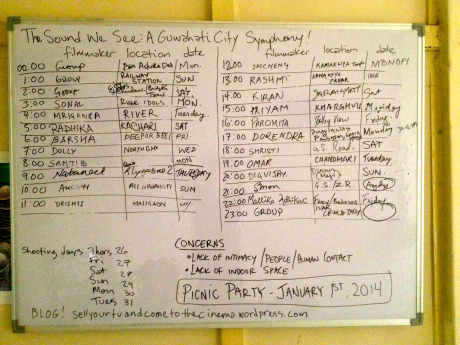 The Sound We See: A Guwahati City Symphony!
filmmaker location date
00:00 Group Mon.
1:00 GROUP RAILWAY STATION SUN
2:00 Group SAT.
3:00 SONAL RIVER IDOLS MON.
4:00 MRIGANKA RIVER Tuesday.
5:00 RADHIKA KACHARI SAT
6:00 BARSHA DEEPOR BEEL FRI
7:00 DOLLY NORTH GHY WED
8:00 SANJIB MON
9:00 Nabaneet THURSDAY
10:00 ALL GUWAHATI SUN
11:00 MALIGAON
filmmaker location date
12:00 JAICHENG KAMAKHYA MONDAY
13:00 RASHMI KAMAKHYA
14:00 KIRAN Sat
15:00 PRIYAM KHARGHULI Monday
16:00 PAROMITA Friday
17:00 DORENDRA Monday
18:00 SHRISTI G.S. Road. SAT
19:00 OMAR CHANDMARI Tuesday
20:00 DIGVIJAY SUN.
21:00 Simon G.S./Z.R.
22:00 Mallika Friday
23:00 GROUP WAR CEMETERY
Shooting days Thurs 26
Fri 27
Sat 28
Sun 29
Mon 30
Tues 31
CONCERNS
• LACK OF INTIMACY / PEOPLE / HUMAN CONTACT
• LACK OF INDOOR SPACE
PICNIC PARTY - JANUARY 1ST, 2014
BLOG! sellyourtvandcometothecinema.wordpress.com